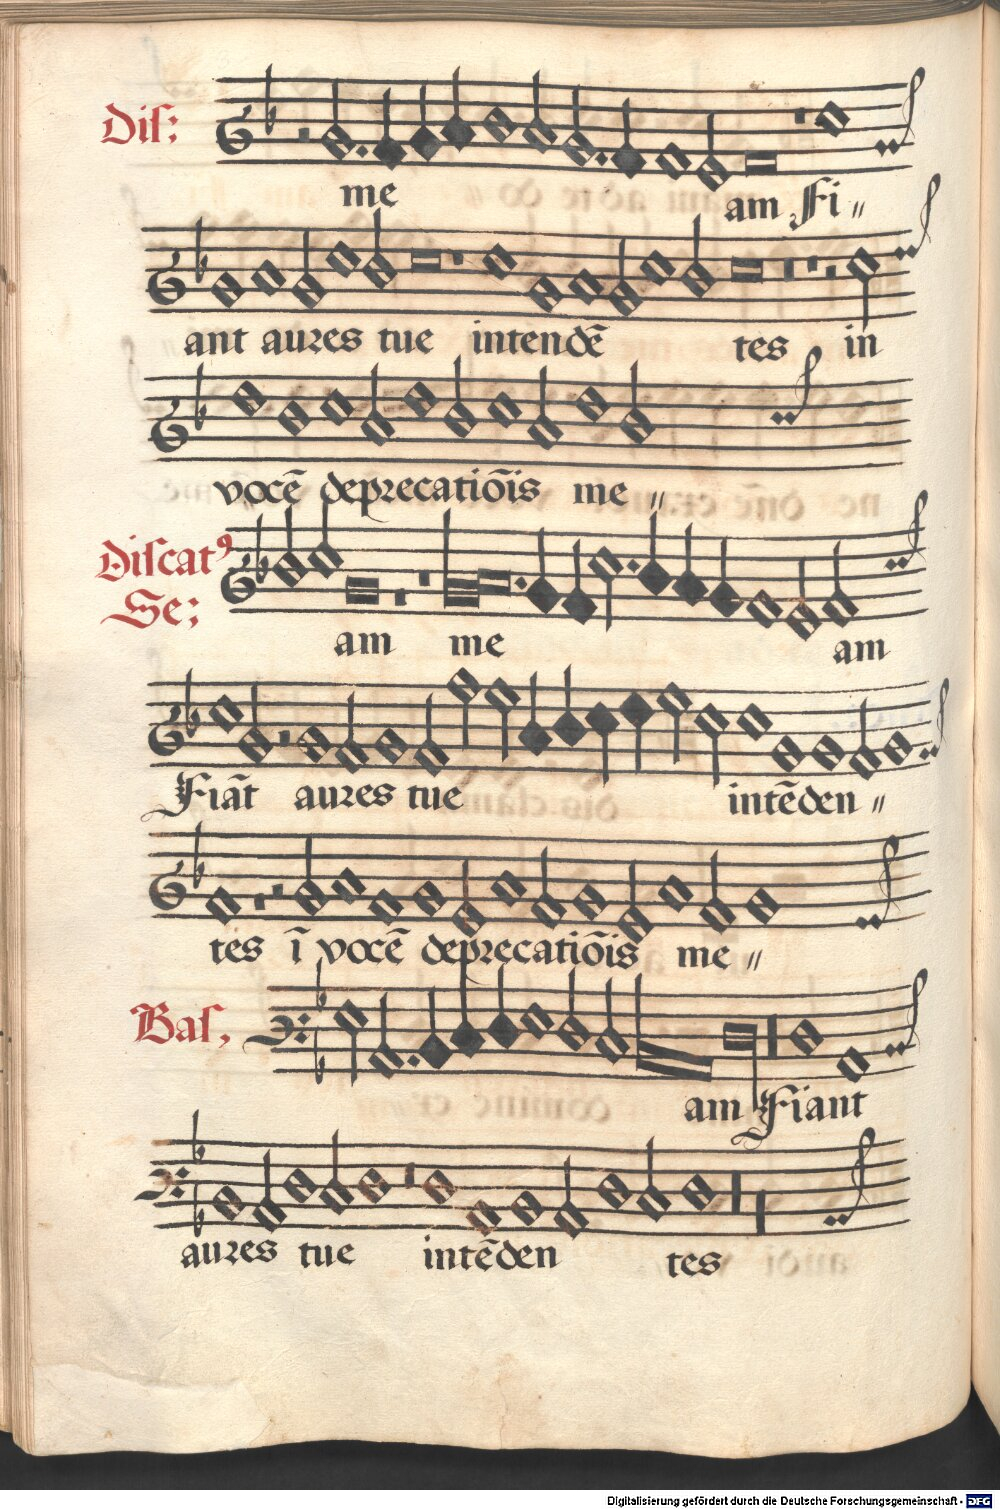 Dis:
me am Fi〃
ant aures tue intendē tes in
vocē deprecatiōis me〃
Discatꝰ
Se;
am me am
Fiāt aures tue intēden〃
tes ī vocē deprecatiōis me〃
Bas,
am Fiant
aures tue intēden tes
Digitalisierung gefördert durch die Deutsche Forschungsgemeinschaft - DFG